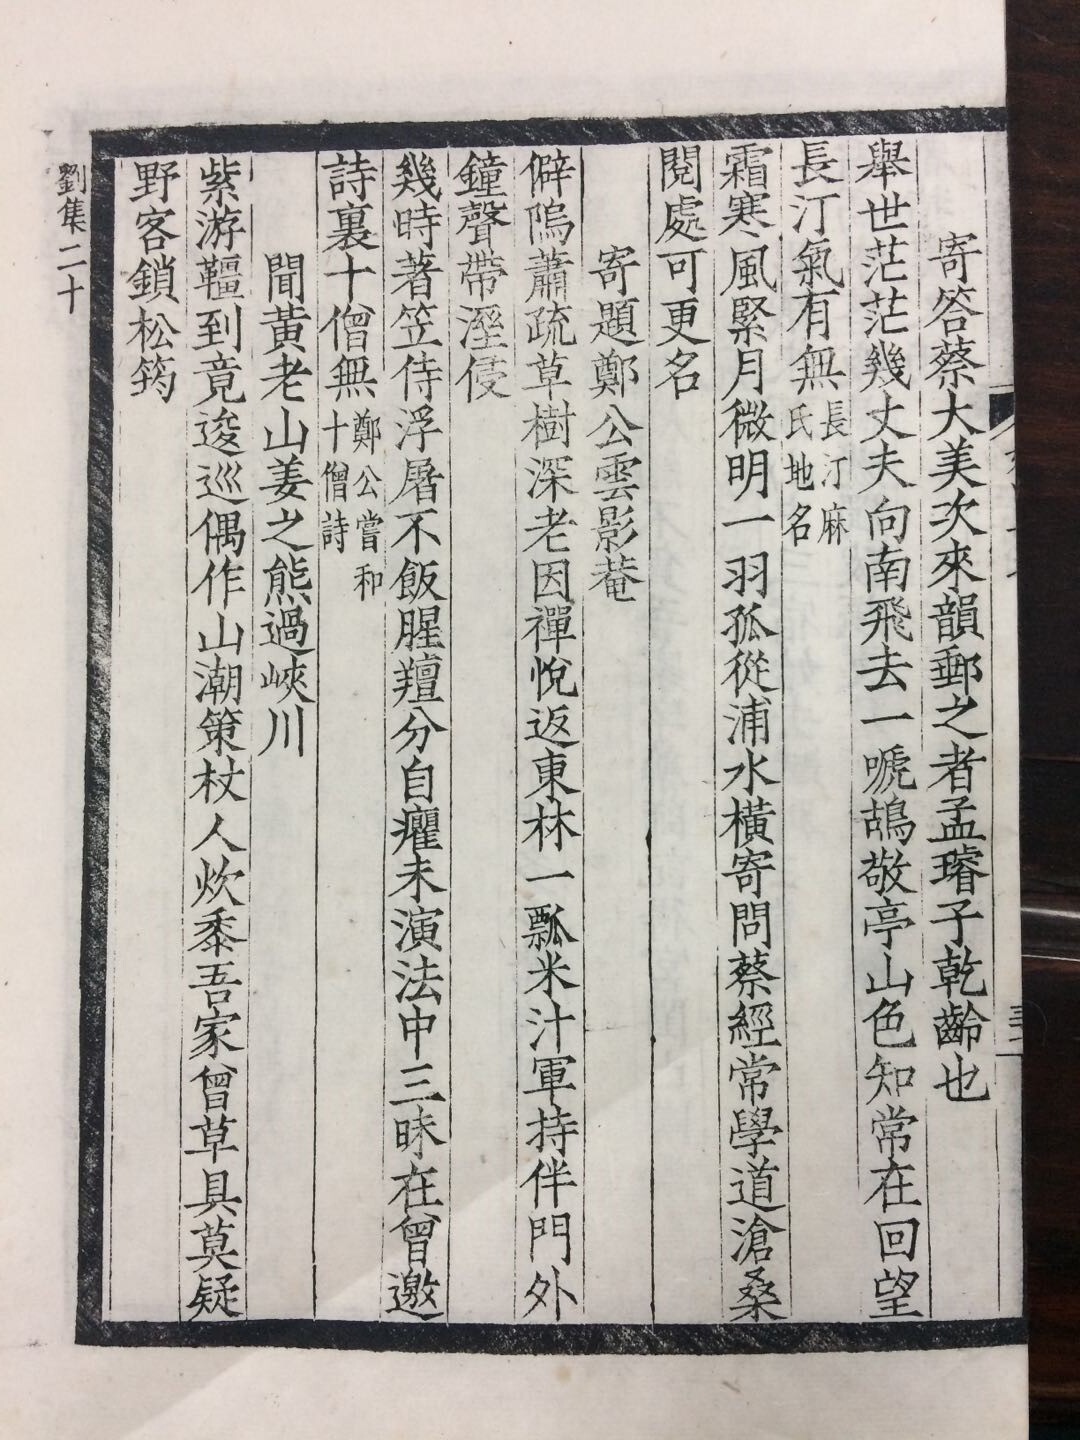 寄答蔡大美次來韻郵之者孟璿子乾齡也
舉世茫茫幾丈夫向南飛去一嗁鴣敬亭山色知常在回望
長汀氣有無長汀麻氏地名
霜寒風緊月微明一羽孤從浦水橫寄問蔡經常學道滄桑
閱處可更名
寄題鄭公雲影菴
僻隖蕭疏草樹深老因禪悅返東林一瓢米汁軍持伴門外
鐘聲帶溼侵
幾時著笠侍浮屠不飯腥羶分自癯未演法中三昧在曾邀
詩裏十僧無鄭公嘗和十僧詩
聞黃老山姜之熊過峽川
紫游韁到竟逡巡偶作山潮策杖人炊黍吾家曾草具莫疑
野客鎖松筠
劉集二十